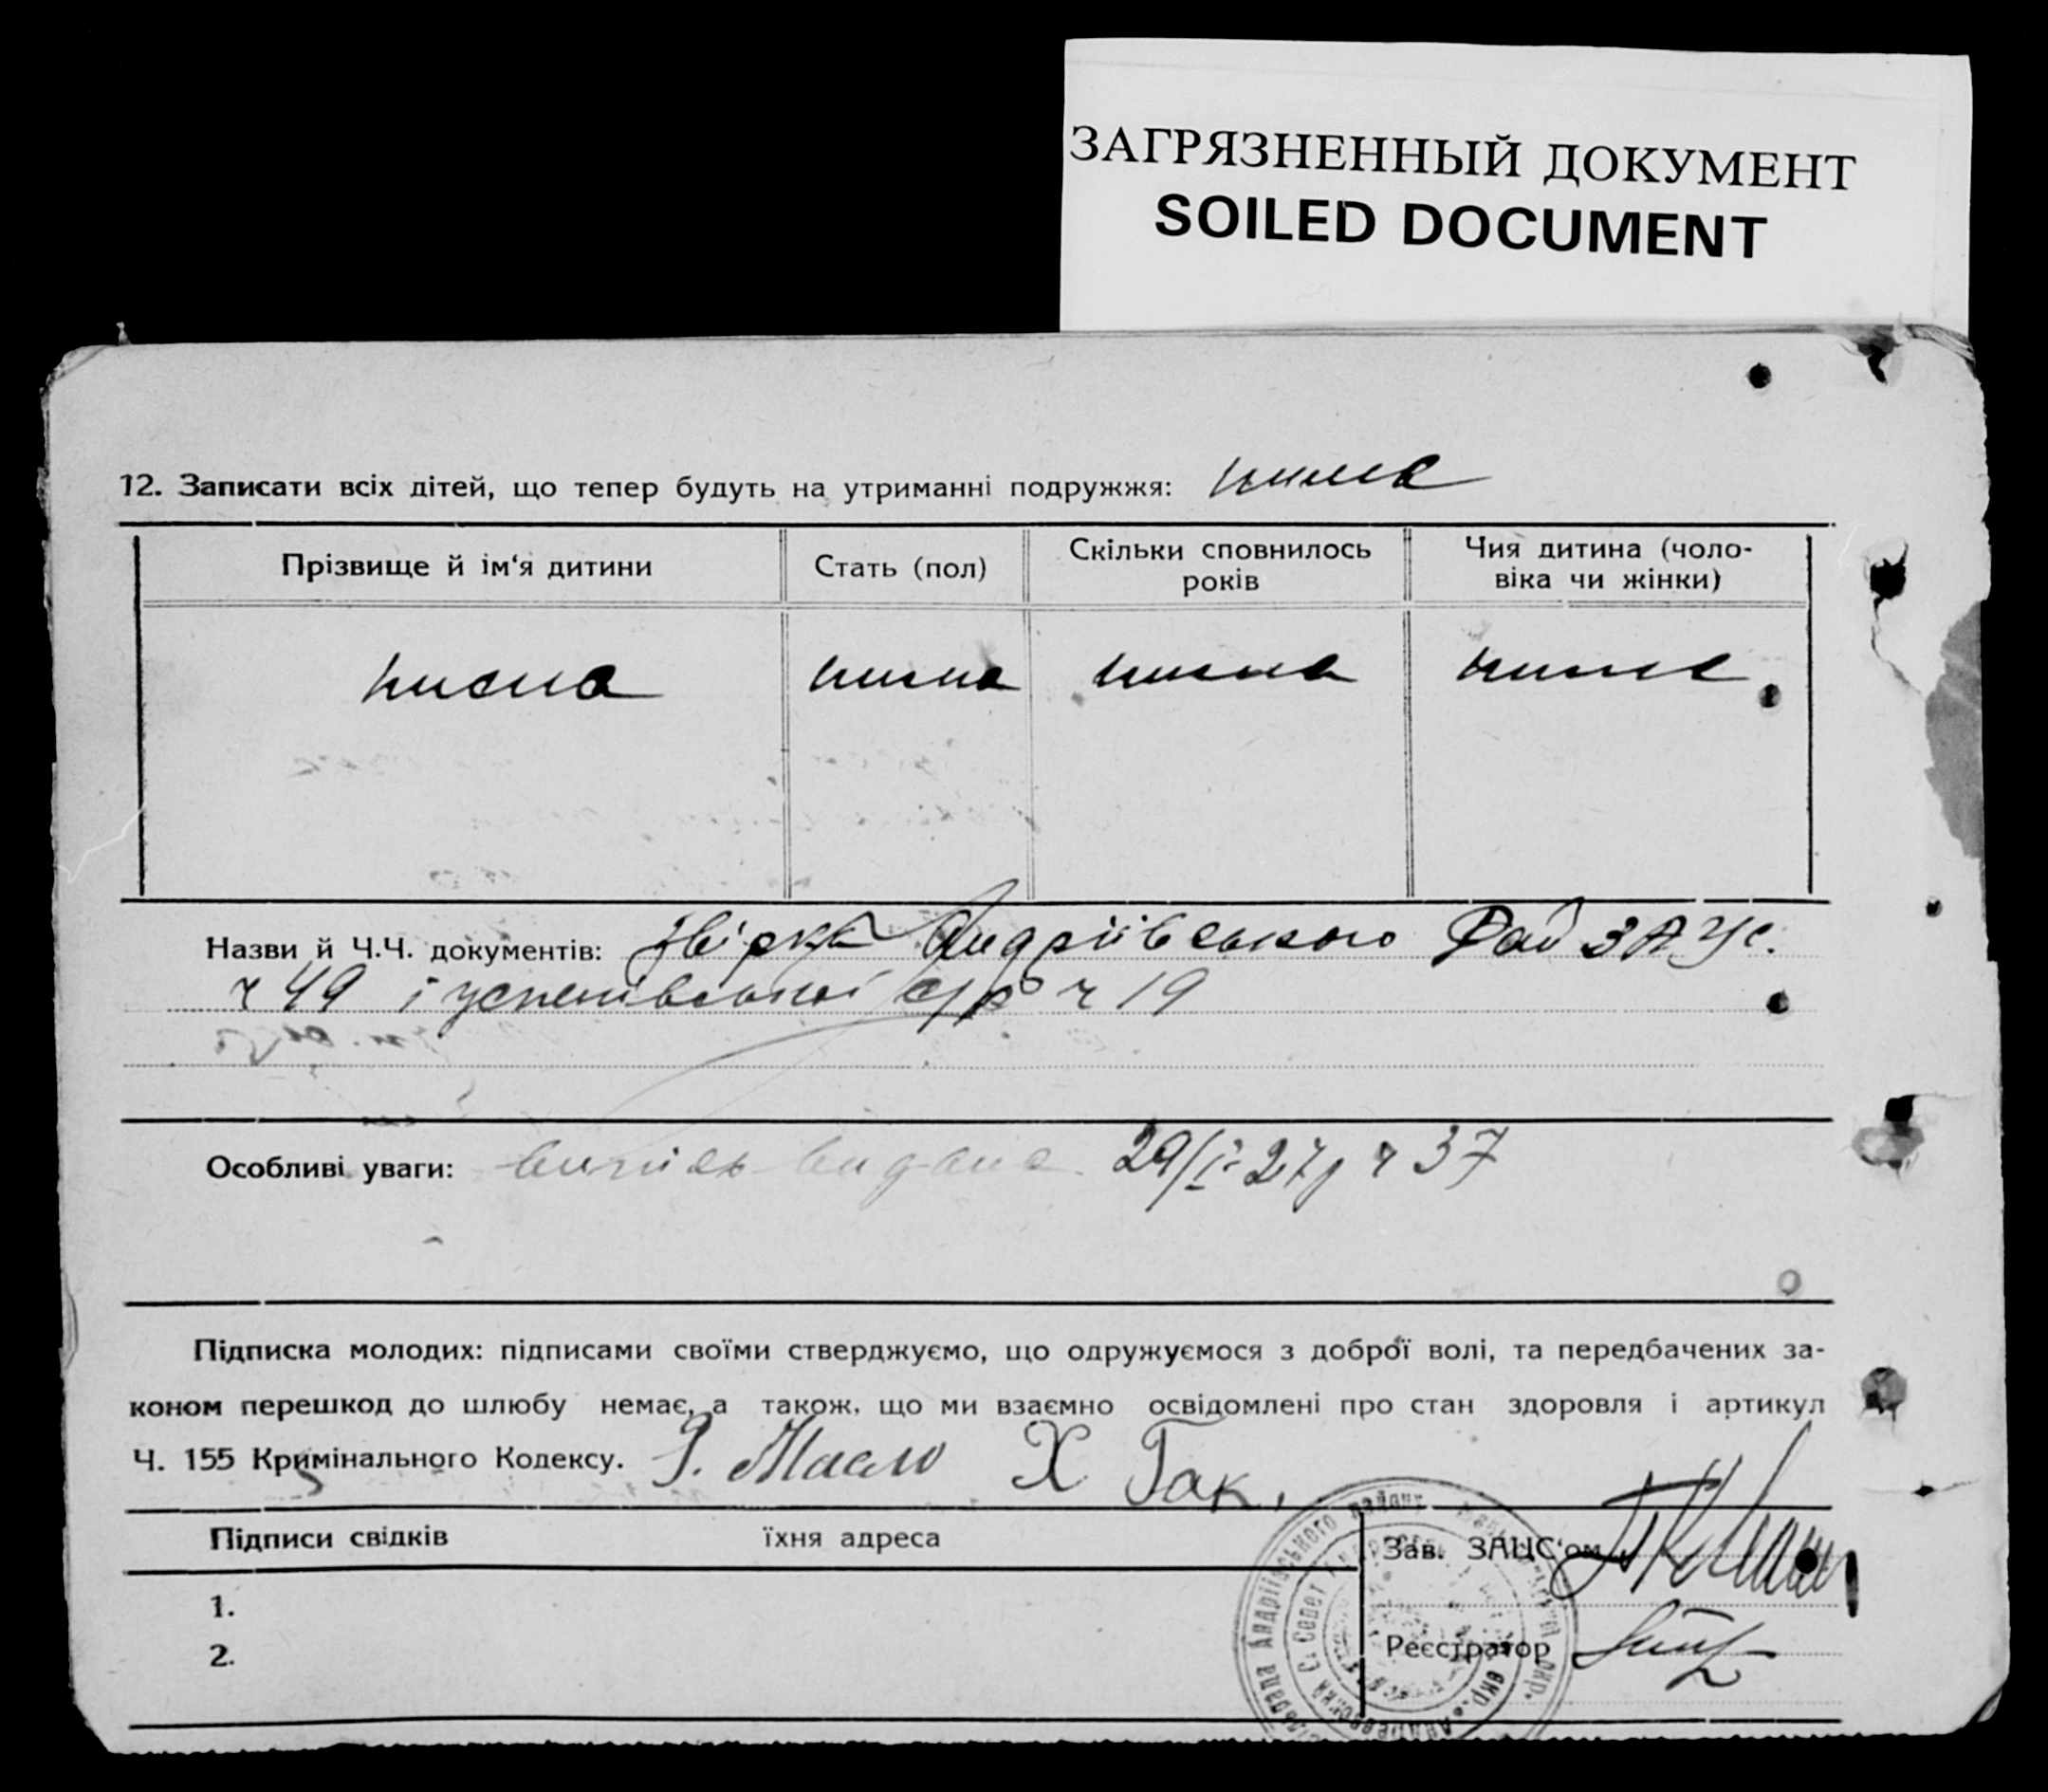 ЗАГРЯЗНЕННЫЙ ДОКУМЕНТ
SOILED DOCUMENT
12. Записати всіх дітей, що тепер будуть на утриманні подружжя: нима
Прізвище й ім‘я дитини
Стать (пол)
Скільки сповнилось
років
Чия дитина (чоло-
віка чи жінки)
нима нима нима нима
Назви й Ч.Ч. документів: Андріївського Рай ЗАЦС.
ч 49 і успенівської с/р ч 19
Особливі уваги: випись видана 29/І-27р ч 37
Підписка молодих: підписами своїми стверджуємо, що одружуємося з доброї волі, та передбачених за-
коном перешкод до шлюбу немає, а також, що ми взаємно освідомлені про стан здоровля і артикул
Ч. 155 Кримінального Кодексу. Масло Х Гак.
Підписи свідків
їхня адреса
Зав. ЗАЦС‘ом
1.
2.
Реєстратор
Андріївського району